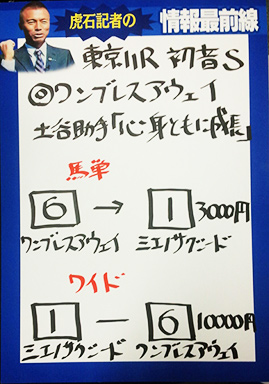 虎石記者の
情報最前線
東京11R 初音S
◎ワンブレスアウェイ
土谷助手「心身ともに成長」
馬単
6 → 1 3000円
ワンブレスアウェイ ミエノサクシード
ワイド
1 − 6 10000円
ミエノサクシード ワンブレスアウェイ